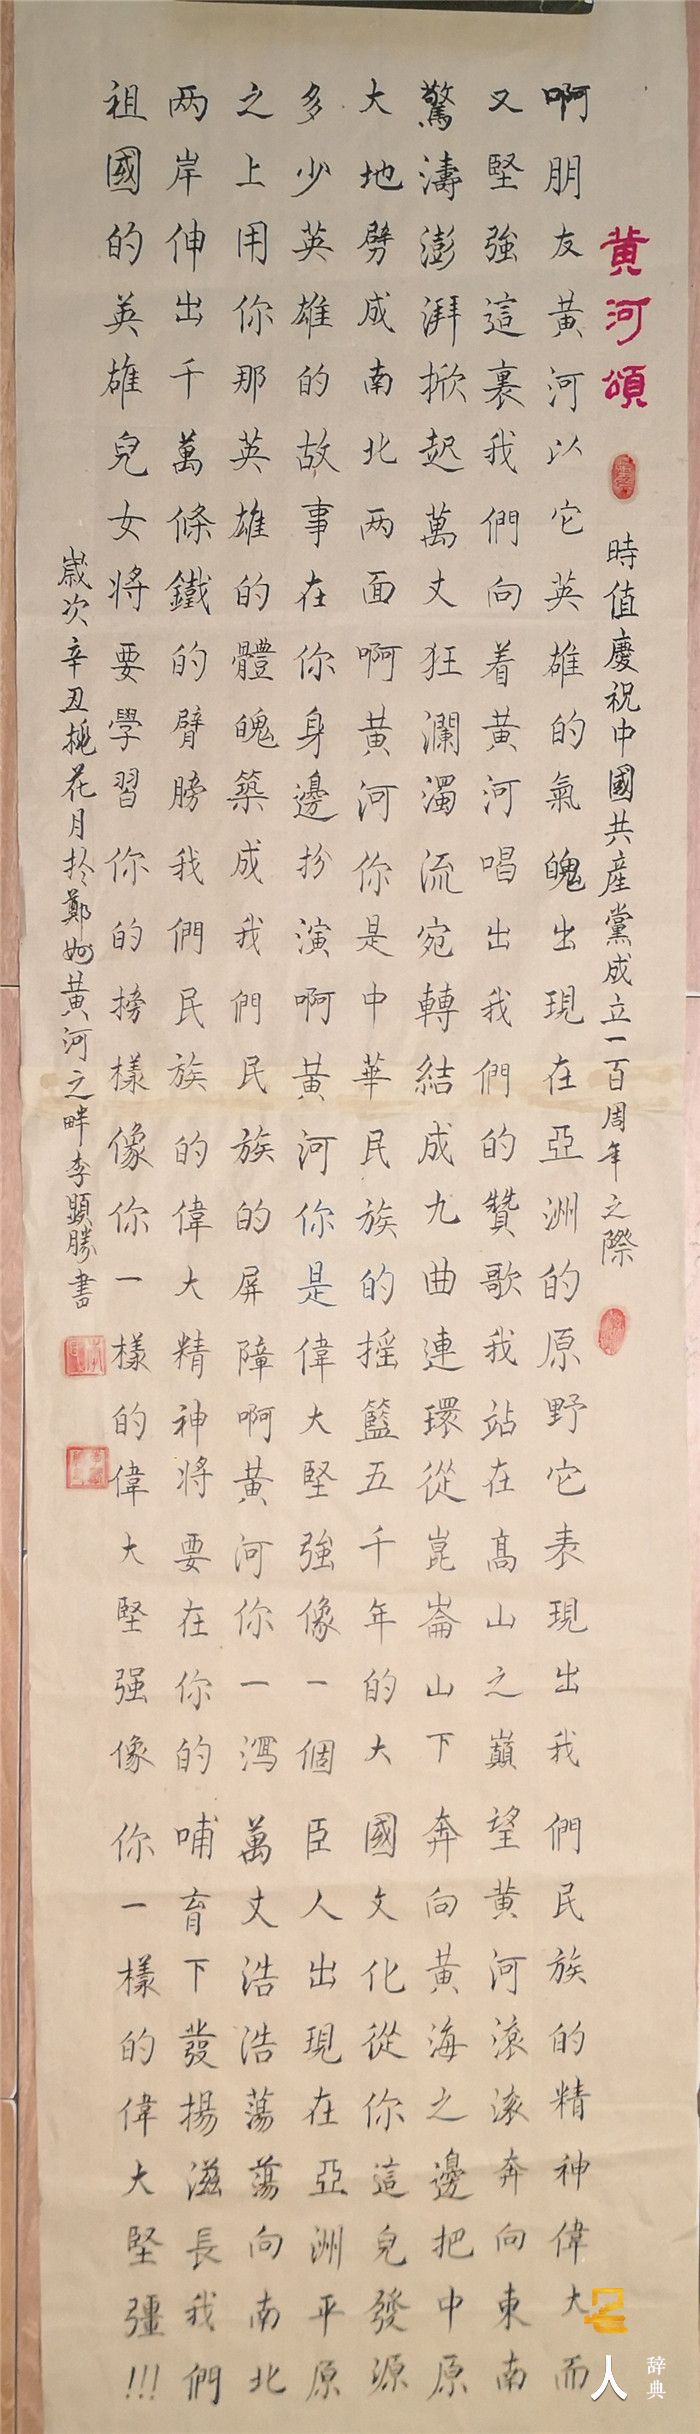 黄河頌
時值慶祝中國共産黨成立一百周年之際
啊朋友黄河以它英雄的氣魄出現在亞洲的原野它表現出我們民族的精神偉大而
又堅強這裏我們向着黄河唱出我們的贊歌我站在髙山之巔望黄河滚滚奔向東南
驚濤澎湃掀起萬丈狂瀾濁流宛轉結成九曲連環從崑崙山下奔向黄海之邊把中原
大地劈成南北两面啊黄河你是中華民族的摇籃五千年的大國文化從你這兒發源
多少英雄的故事在你身邊扮演啊黄河你是偉大堅強像一個臣人出現在亞洲平原
之上用你那英雄的體魄築成我們民族的屏障啊黄河你一瀉萬丈浩浩蕩蕩向南北
两岸伸出千萬條鐵的臂膀我們民族的偉大精神將要在你的哺育下發揚滋長我們
祖國的英雄兒女将要學習你的榜樣像你一樣的偉大堅强像你一樣的偉大堅彊!!!
歲次辛丑桃花月於鄭州黄河之畔李顯勝書
名人
辞典